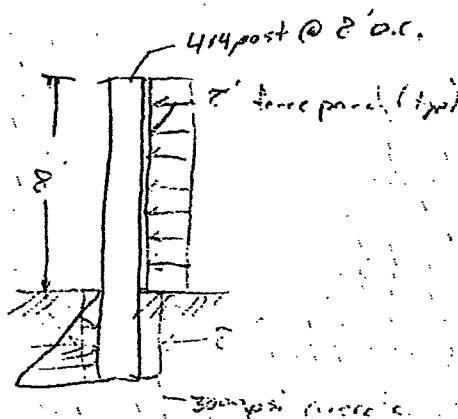 4x4 post @ 8' O.C.
fence panel (typ)
8'
3000 psi concrete